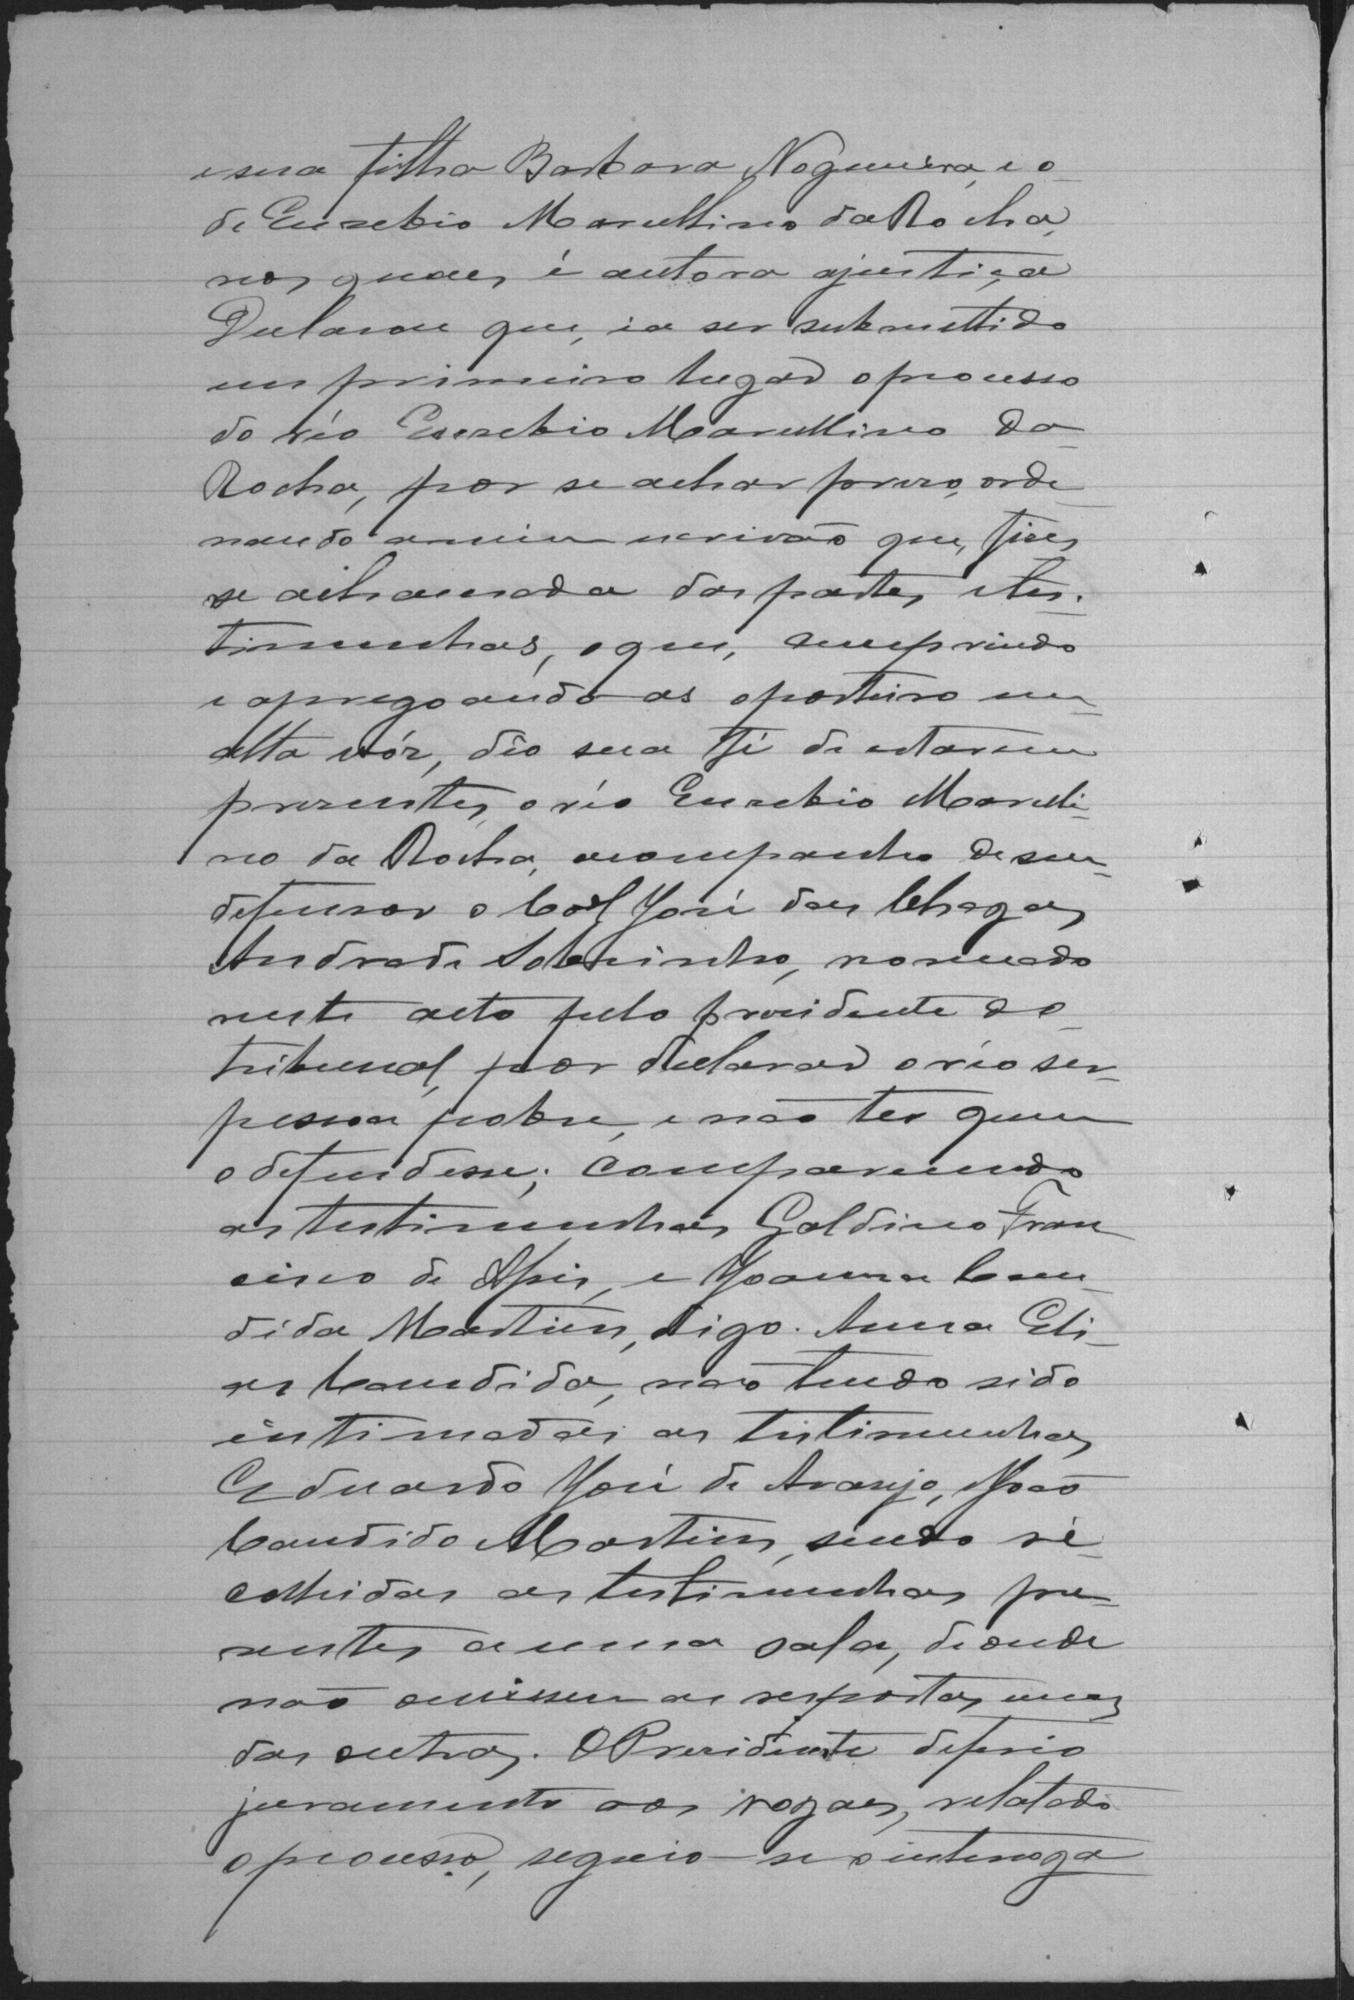 e sua filha Barbara Nogueira, e o
de Euzebio Marcellino da Rocha,
nos quaes é autora a justiça
Declarou que, ia ser submettido
em primeiro lugar o processo
do réo Euzebio Marcellino da
Rocha, por se achar prezo, orde
nando a mim escrivão que, fizes
se a chamada das partes, e tes-
timunhas, o que, cumprindo
e apregoando-as o porteiro em
alta vóz, déo sua fé de estarem
prezentes, o réo Euzebio Marcelli-
no da Rocha, acompanho de seu
defensor o Coel José das Chagas
Andrade Sobrinho, nomeado
neste acto pelo prezidente do
tribunal, por declarar o réo ser
pessoa pobre, e não ter quem
o defendesse; comparecendo
as testimunhas Galdino Fran
cisco de Assis, e Joanna Can-
dida Martins, digo. Anna Eli-
as Candida, não tendo sido
intimadas as testimunhas
Eduardo José de Araujo, João
Candido Martins, sendo re-
colhidas as testimunhas pre-
zentes a uma sala, de onde
não ouvissem as respostas umas
das outras. O Prezidente deferio
juramento aos vogaes, relatado
o processo, seguio-se o interroga